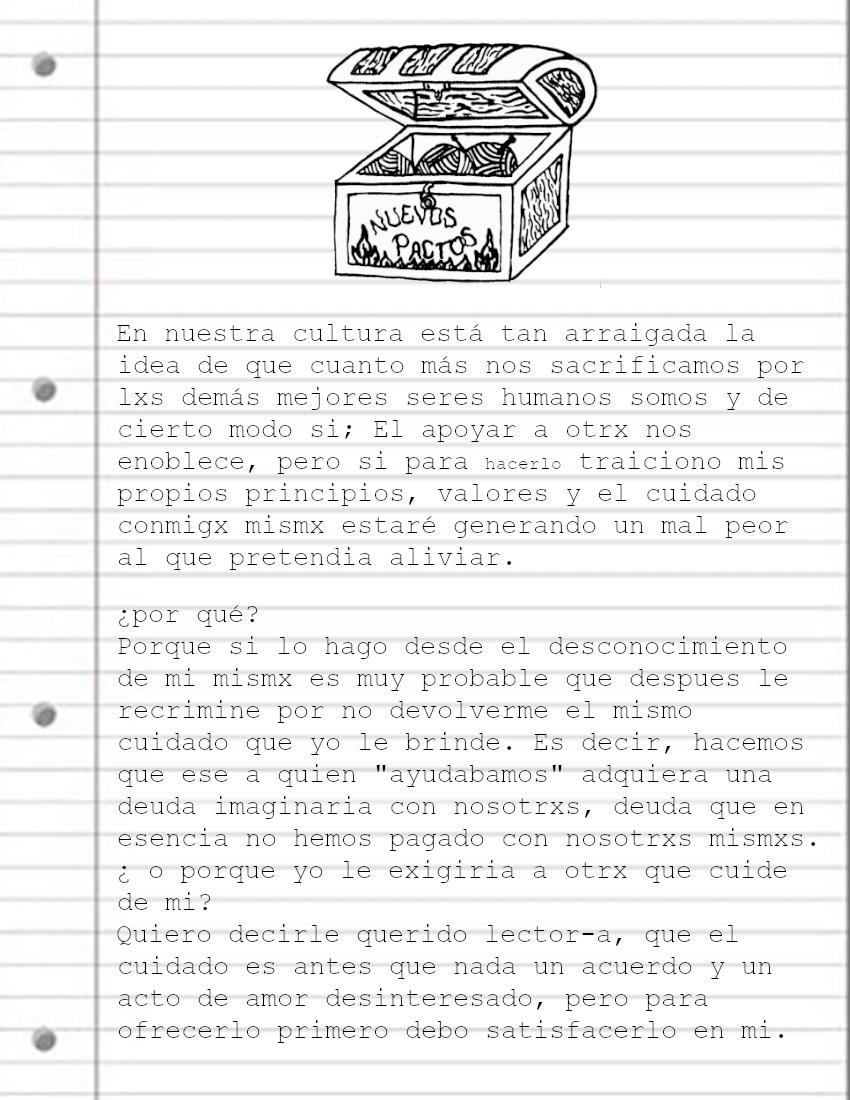 NUEVOS
PACTOS
En nuestra cultura está tan arraigada la
idea de que cuanto más nos sacrificamos por
lxs demás mejores seres humanos somos y de
cierto modo si; El apoyar a otrx nos
enoblece, pero si para hacerlo traiciono mis
propios principios, valores y el cuidado
conmigx mismx estaré generando un mal peor
al que pretendia aliviar.
¿por qué?
Porque si lo hago desde el desconocimiento
de mi mismx es muy probable que despues le
recrimine por no devolverme el mismo
cuidado que yo le brinde. Es decir, hacemos
que ese a quien "ayudabamos" adquiera una
deuda imaginaria con nosotrxs, deuda que en
esencia no hemos pagado con nosotrxs mismxs.
¿ o porque yo le exigiria a otrx que cuide
de mi?
Quiero decirle querido lector-a, que el
cuidado es antes que nada un acuerdo y un
acto de amor desinteresado, pero para
ofrecerlo primero debo satisfacerlo en mi.